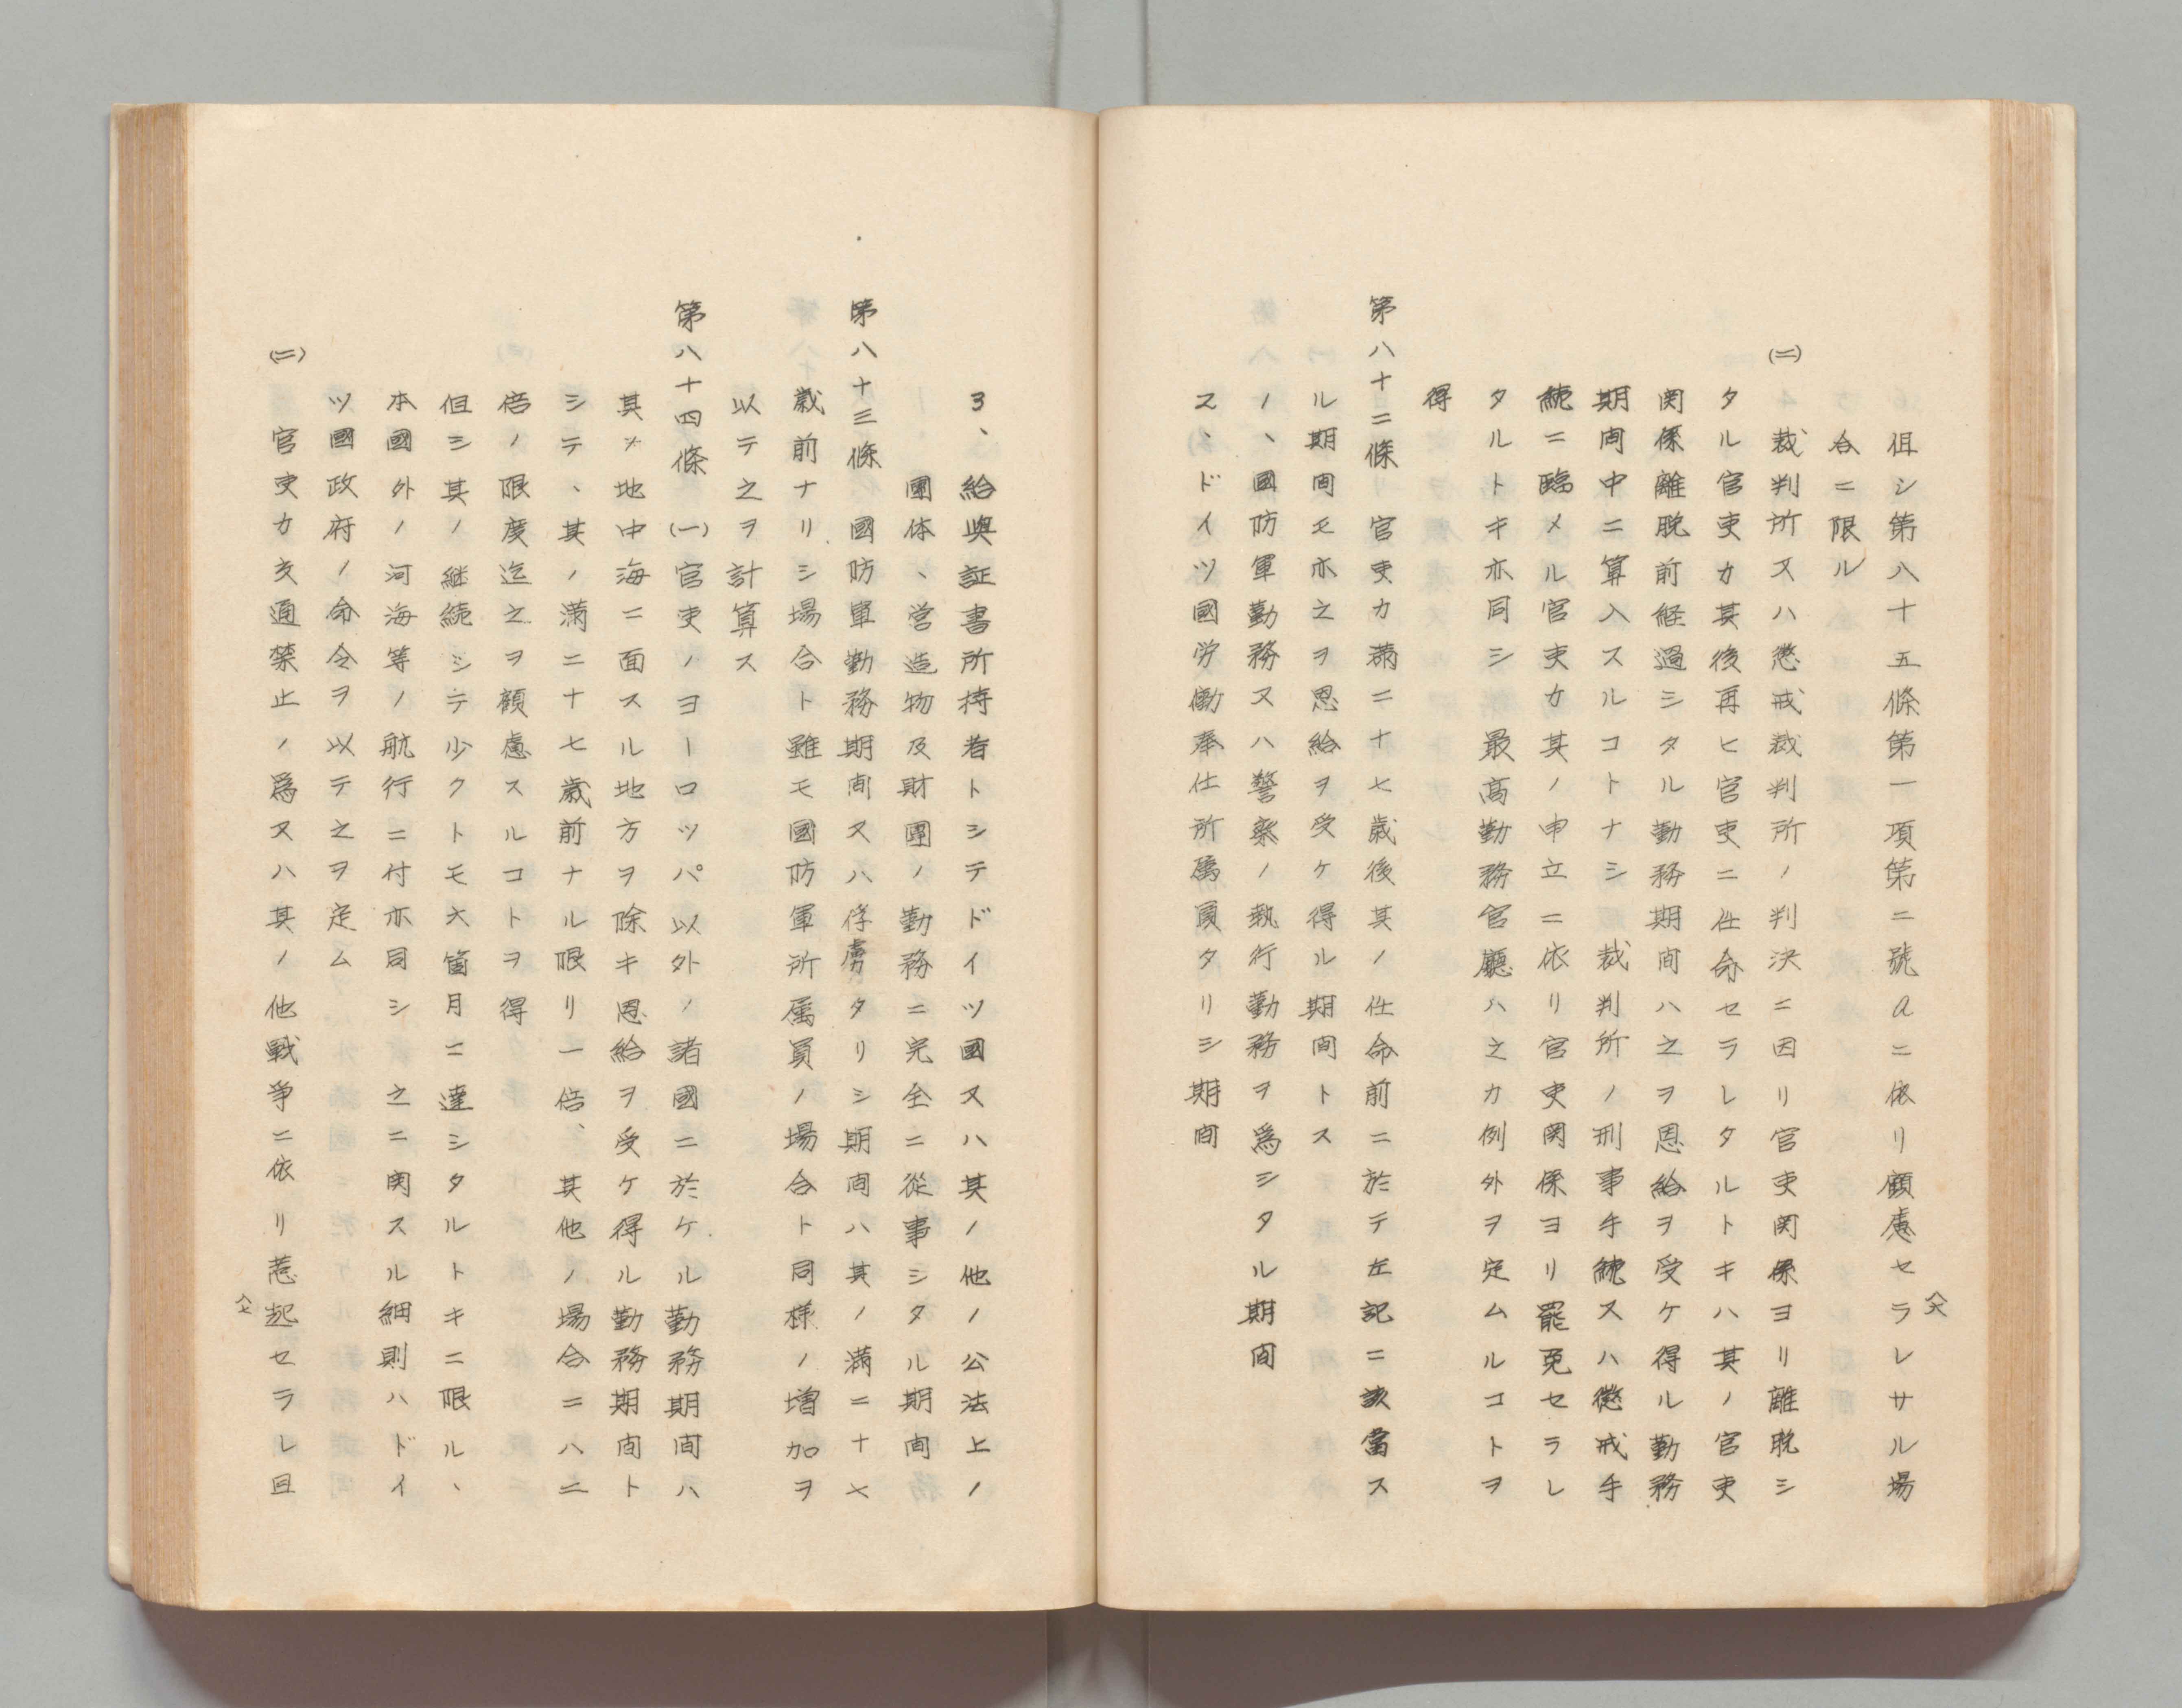 但シ第八十五條第一項第二號aニ依リ顧慮セラレサル場
合ニ限ル
(二) 裁判所又ハ懲戒裁判所ノ判決ニ因リ官吏関係ヨリ離脱シ
タル官吏カ其後再ヒ官吏ニ任命セラレタルトキハ其ノ官吏
関係離脱前経過シタル勤務期間ハ之ヲ恩給ヲ受ケ得ル勤務
期間中ニ算入スルコトナシ 裁判所ノ刑事手続又ハ懲戒手
続ニ臨メル官吏カ其ノ申立ニ依リ官吏関係ヨリ罷免セラレ
タルトキ亦同シ 最高勤務官廳ハ之カ例外ヲ定ムルコトヲ
得
第八十二條 官吏カ満二十七歳後其ノ任命前ニ於テ左記ニ該當ス
ル期間モ亦之ヲ恩給ヲ受ケ得ル期間トス
1、國防軍勤務又ハ警察ノ執行勤務ヲ為シタル期間
2、ドイツ國労働奉仕所属員タリシ期間
八六
3、給與証書所持者トシテドイツ國又ハ其ノ他ノ公法上ノ
團体、営造物及財團ノ勤務ニ完全ニ從事シタル期間
第八十三條 國防軍勤務期間又ハ俘虜タリシ期間ハ其ノ満二十七
歳前ナリシ場合ト雖モ國防軍所属員ノ場合ト同様ノ増加ヲ
以テ之ヲ計算ス
第八十四條 (一)官吏ノヨーロッパ以外ノ諸國ニ於ケル勤務期間ハ
其ノ地中海ニ面スル地方ヲ除キ恩給ヲ受ケ得ル勤務期間ト
シテ、其ノ満二十七歳前ナル限リ一倍、其他ノ場合ニハ二
倍ノ限度迄之ヲ顧慮スルコトヲ得
但シ其ノ継続シテ少クトモ六箇月ニ達シタルトキニ限ル、
本國外ノ河海等ノ航行ニ付亦同シ 之ニ関スル細則ハドイ
ツ國政府ノ命令ヲ以テ之ヲ定ム
(二) 官吏カ交通禁止ノ為又ハ其ノ他戦争ニ依リ惹起セラレ且
八七